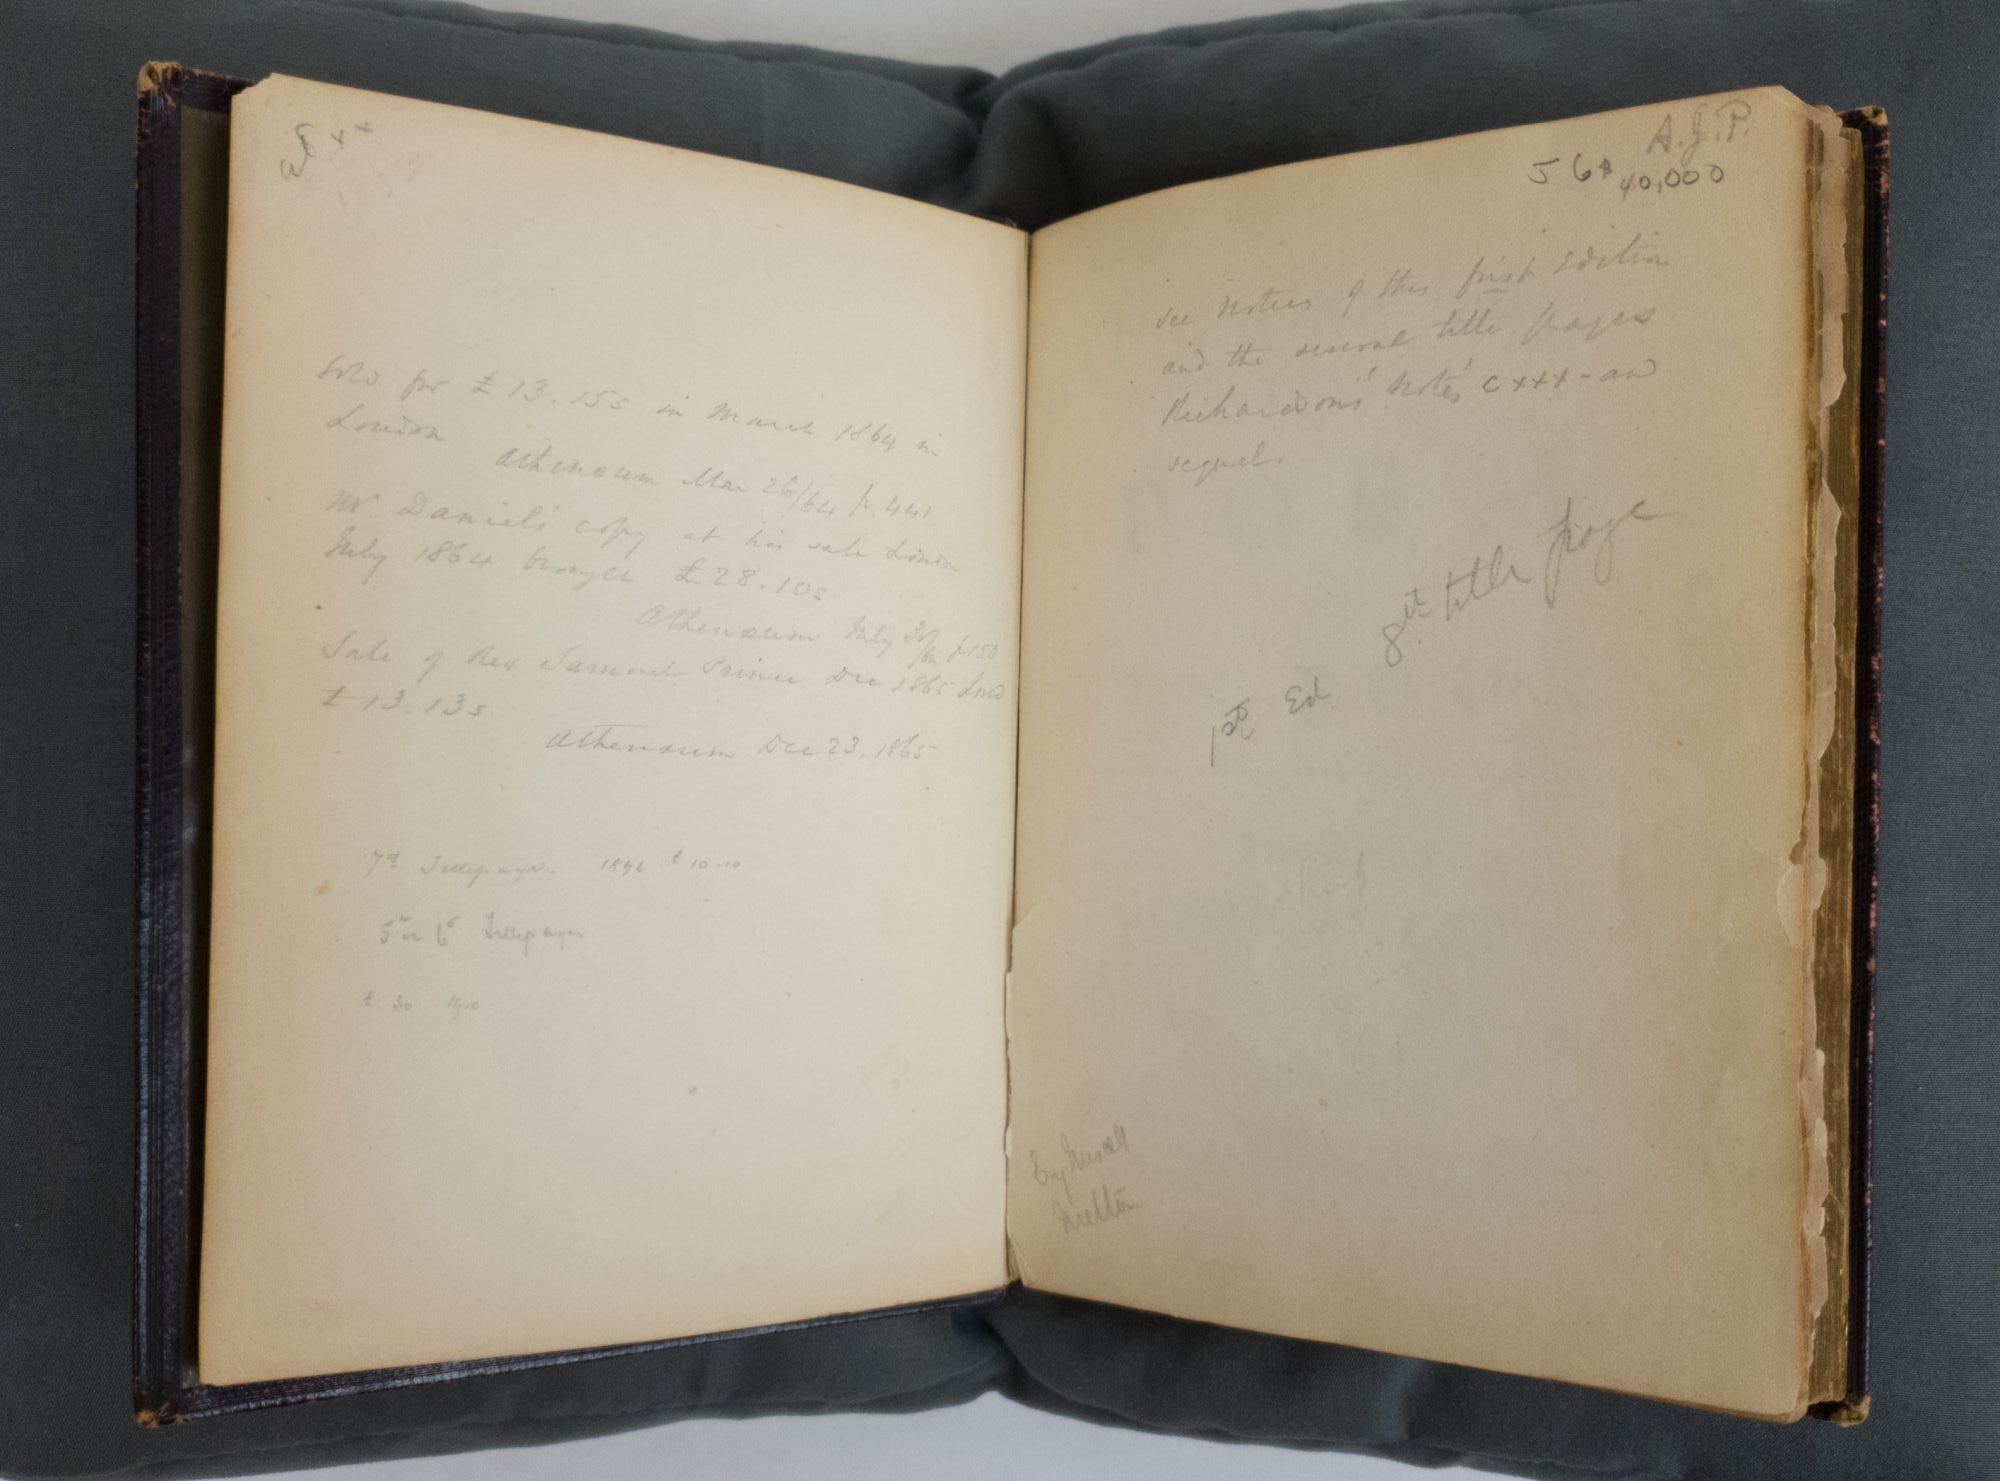 Sold for £13.15s in March 1864 in
London
Athenaeum Mar 26/64 p.441
Mr Daniel's copy at his sale London
July 1864 brought £28.10s
Athenaeum July 30/64 p150
Sale of Rev Samuel Prince Dec 1865
£13.13s
Athenaeum Dec 23. 1865
7th Titlepage. 1896 £10-10
5th or 6th Titlepage
£30 1910
A.J.P.
56 40,000
see notices of this first edition
and the several title pages
Richardson's 'Notes' cxxx - and
sequel.
8th title page
1st Ed.